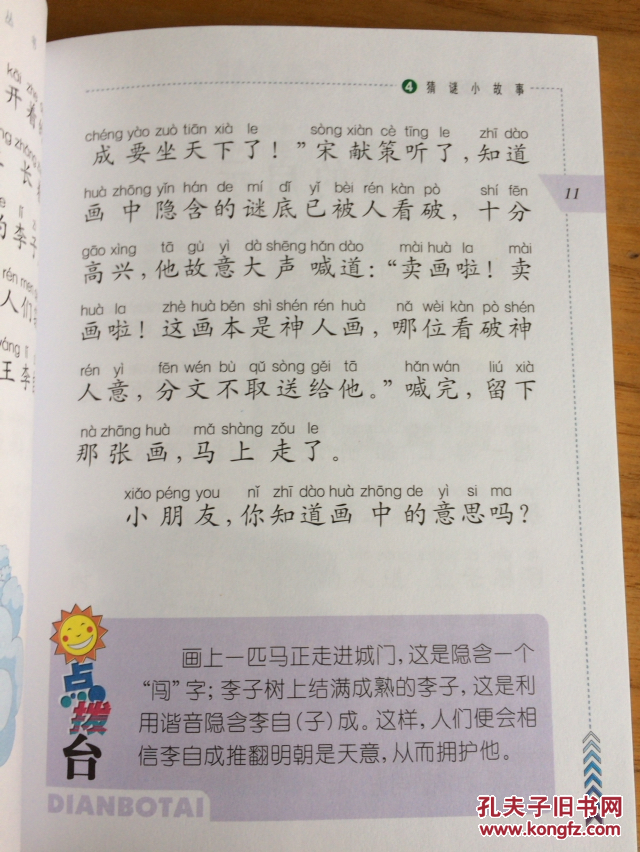 丛书
kāi zhe
开着
长
的李子
rén men
人们
王李
4 猜谜小故事
11
chéng yào zuò tiān xià le sòng xiàn cè tīng le zhī dào
成要坐天下了！”宋献策听了，知道
huà zhōng yǐn hán de mí dǐ yǐ bèi rén kàn pò shí fēn
画中隐含的谜底已被人看破，十分
gāo xìng tā gù yì dà shēng hǎn dào mài huà la mài
高兴，他故意大声喊道：“卖画啦！卖
huà la zhè huà běn shì shén rén huà nǎ wèi kàn pò shén
画啦！这画本是神人画，哪位看破神
rén yì fēn wén bù qǔ sòng gěi tā hǎn wán liú xià
人意，分文不取送给他。”喊完，留下
nà zhāng huà mǎ shàng zǒu le
那张画，马上走了。
xiǎo péng you nǐ zhī dào huà zhōng de yì si ma
小朋友，你知道画中的意思吗？
点拨台
画上一匹马正走进城门，这是隐含一个
“闯”字；李子树上结满成熟的李子，这是利
用谐音隐含李自（子）成。这样，人们便会相
信李自成推翻明朝是天意，从而拥护他。
DIANBOTAI
孔夫子旧书网
www.kongfz.com